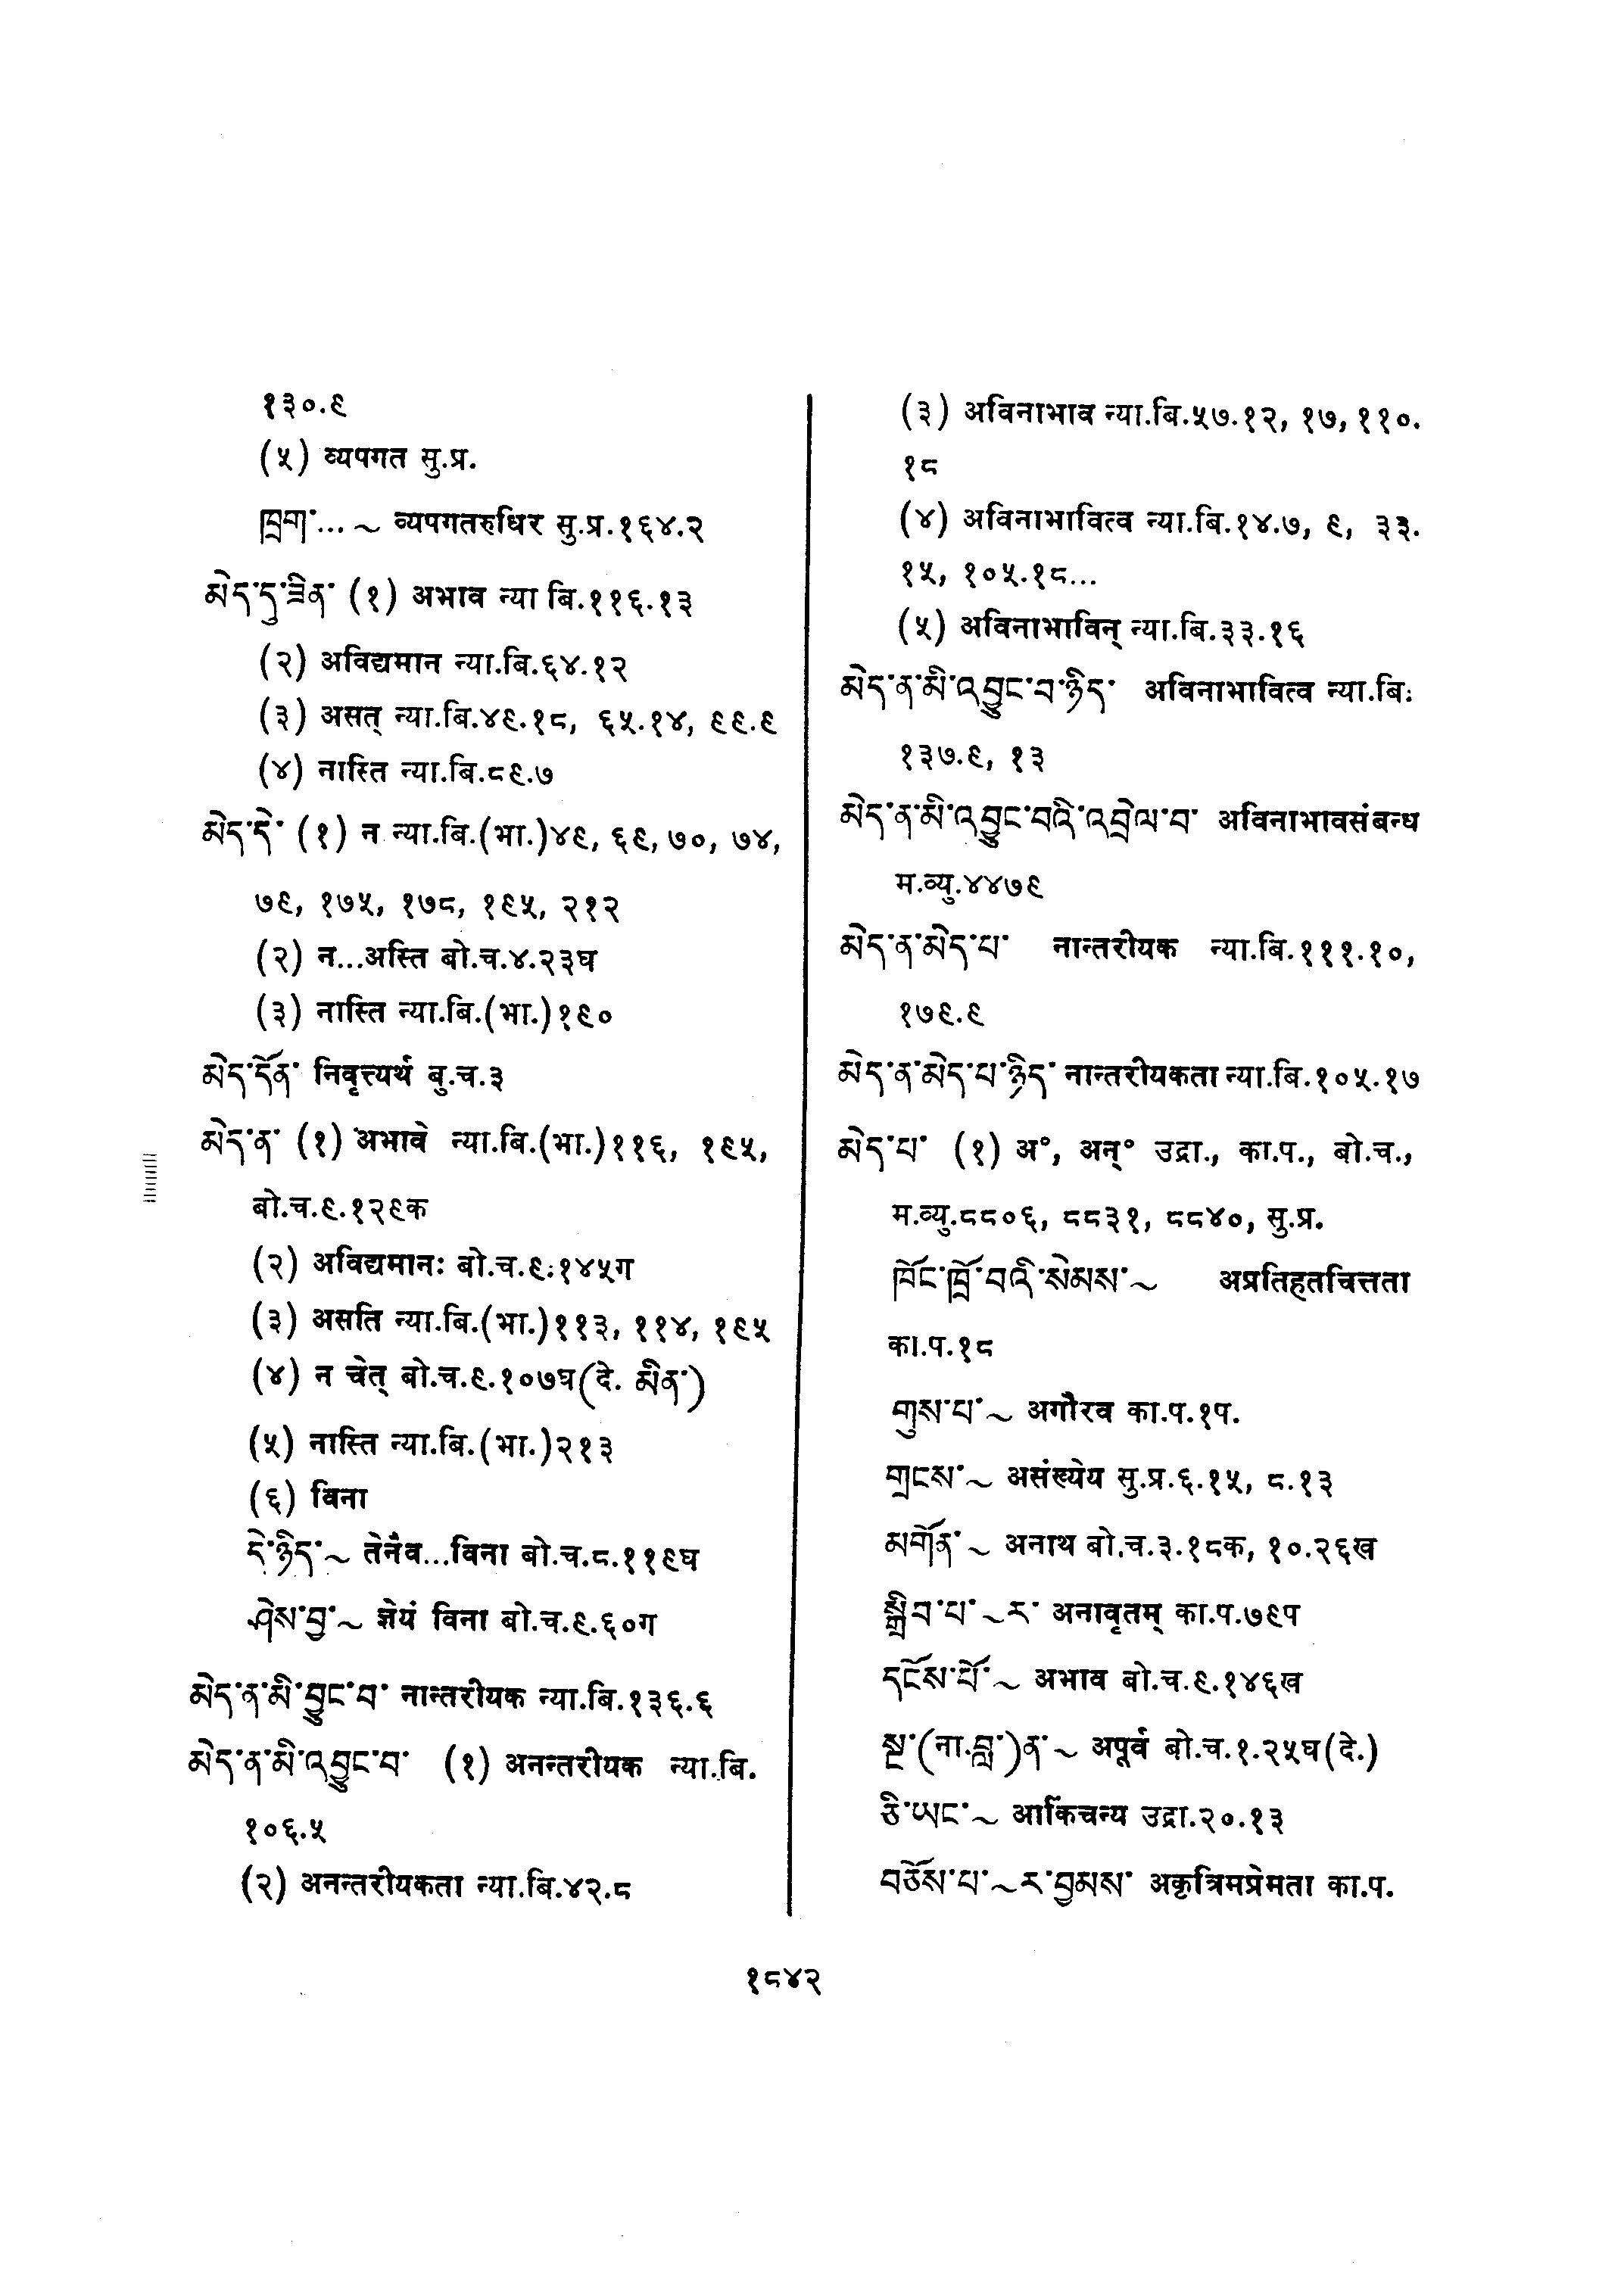 १३०.९
(५) व्यपगत सु.प्र.
ཁྲག་... ~ व्यपगतरुधिर सु.प्र.१६४.२
མེད་དུ་ཟིན་ (१) अभाव न्या बि.११६.१३
(२) अविद्यमान न्या.बि.६४.१२
(३) असत् न्या.बि.४९.१८, ६५.१४, ९९.९
(४) नास्ति न्या.बि.८९.७
མེད་དེ་ (१) न न्या.बि.(भा.)४९, ६९, ७०, ७४,
७९, १७५, १७८, १९५, २१२
(२) न...अस्ति बो.च.४.२३घ
(३) नास्ति न्या.बि.(भा.)१९०
མེད་དོན་ निवृत्त्यर्थ बु.च.३
མེད་ན་ (१) अभावे न्या.बि.(भा.)११६, १९५,
बो.च.९.१२९क
(२) अविद्यमानः बो.च.९.१४५ग
(३) असति न्या.बि.(भा.)११३, ११४, १९५
(४) न चेत् बो.च.९.१०७घ(दे. མིན་)
(५) नास्ति न्या.बि.(भा.)२१३
(६) विना
དེ་ཉིད་~ तेनैव...विना बो.च.८.११९घ
ཤེས་བྱ་~ ज्ञेयं विना बो.च.९.६०ग
མེད་ན་མི་བྱུང་བ་ नान्तरीयक न्या.बि.१३६.६
མེད་ན་མི་འབྱུང་བ་ (१) अनन्तरीयक न्या.बि.
१०६.५
(२) अनन्तरीयकता न्या.बि.४२.८
(३) अविनाभाव न्या.बि.५७.१२, १७, ११०.
१८
(४) अविनाभावित्व न्या.बि.१४.७, ९, ३३.
१५, १०५.१८...
(५) अविनाभाविन् न्या.बि.३३.१६
མེད་ན་མི་འབྱུང་བ་ཉིད་ अविनाभावित्व न्या.बि.
१३७.९, १३
མེད་ན་མི་འབྱུང་བའི་འབྲེལ་བ་ अविनाभावसंबन्ध
म.व्यु.४४७९
མེད་ན་མེད་པ་ नान्तरीयक न्या.बि.१११.१०,
१७९.९
མེད་ན་མེད་པ་ཉིད་ नान्तरीयकता न्या.बि.१०५.१७
མེད་པ་ (१) अ°, अन्° उद्रा., का.प., बो.च.,
म.व्यु.८८०६, ८८३१, ८८४०, सु.प्र.
ཁོང་ཁྲོ་བའི་སེམས་~ अप्रतिहतचित्तता
का.प.१८
གུས་པ་~ अगौरव का.प.१प.
གྲངས་~ असंख्येय सु.प्र.६.१५, ८.१३
མགོན་~ अनाथ बो.च.३.१८क, १०.२६ख
སྒྲིབ་པ་~ར་ अनावृतम् का.प.७९प
དངོས་པོ་~ अभाव बो.च.९.१४६ख
སྔ་(ना.བླ་)ན་~ अपूर्व बो.च.१.२५घ(दे.)
ཅི་ཡང་~ आकिंचन्य उद्रा.२०.१३
བཅོས་པ་~ར་བྱམས་ अकृत्रिमप्रेमता का.प.
१८४२